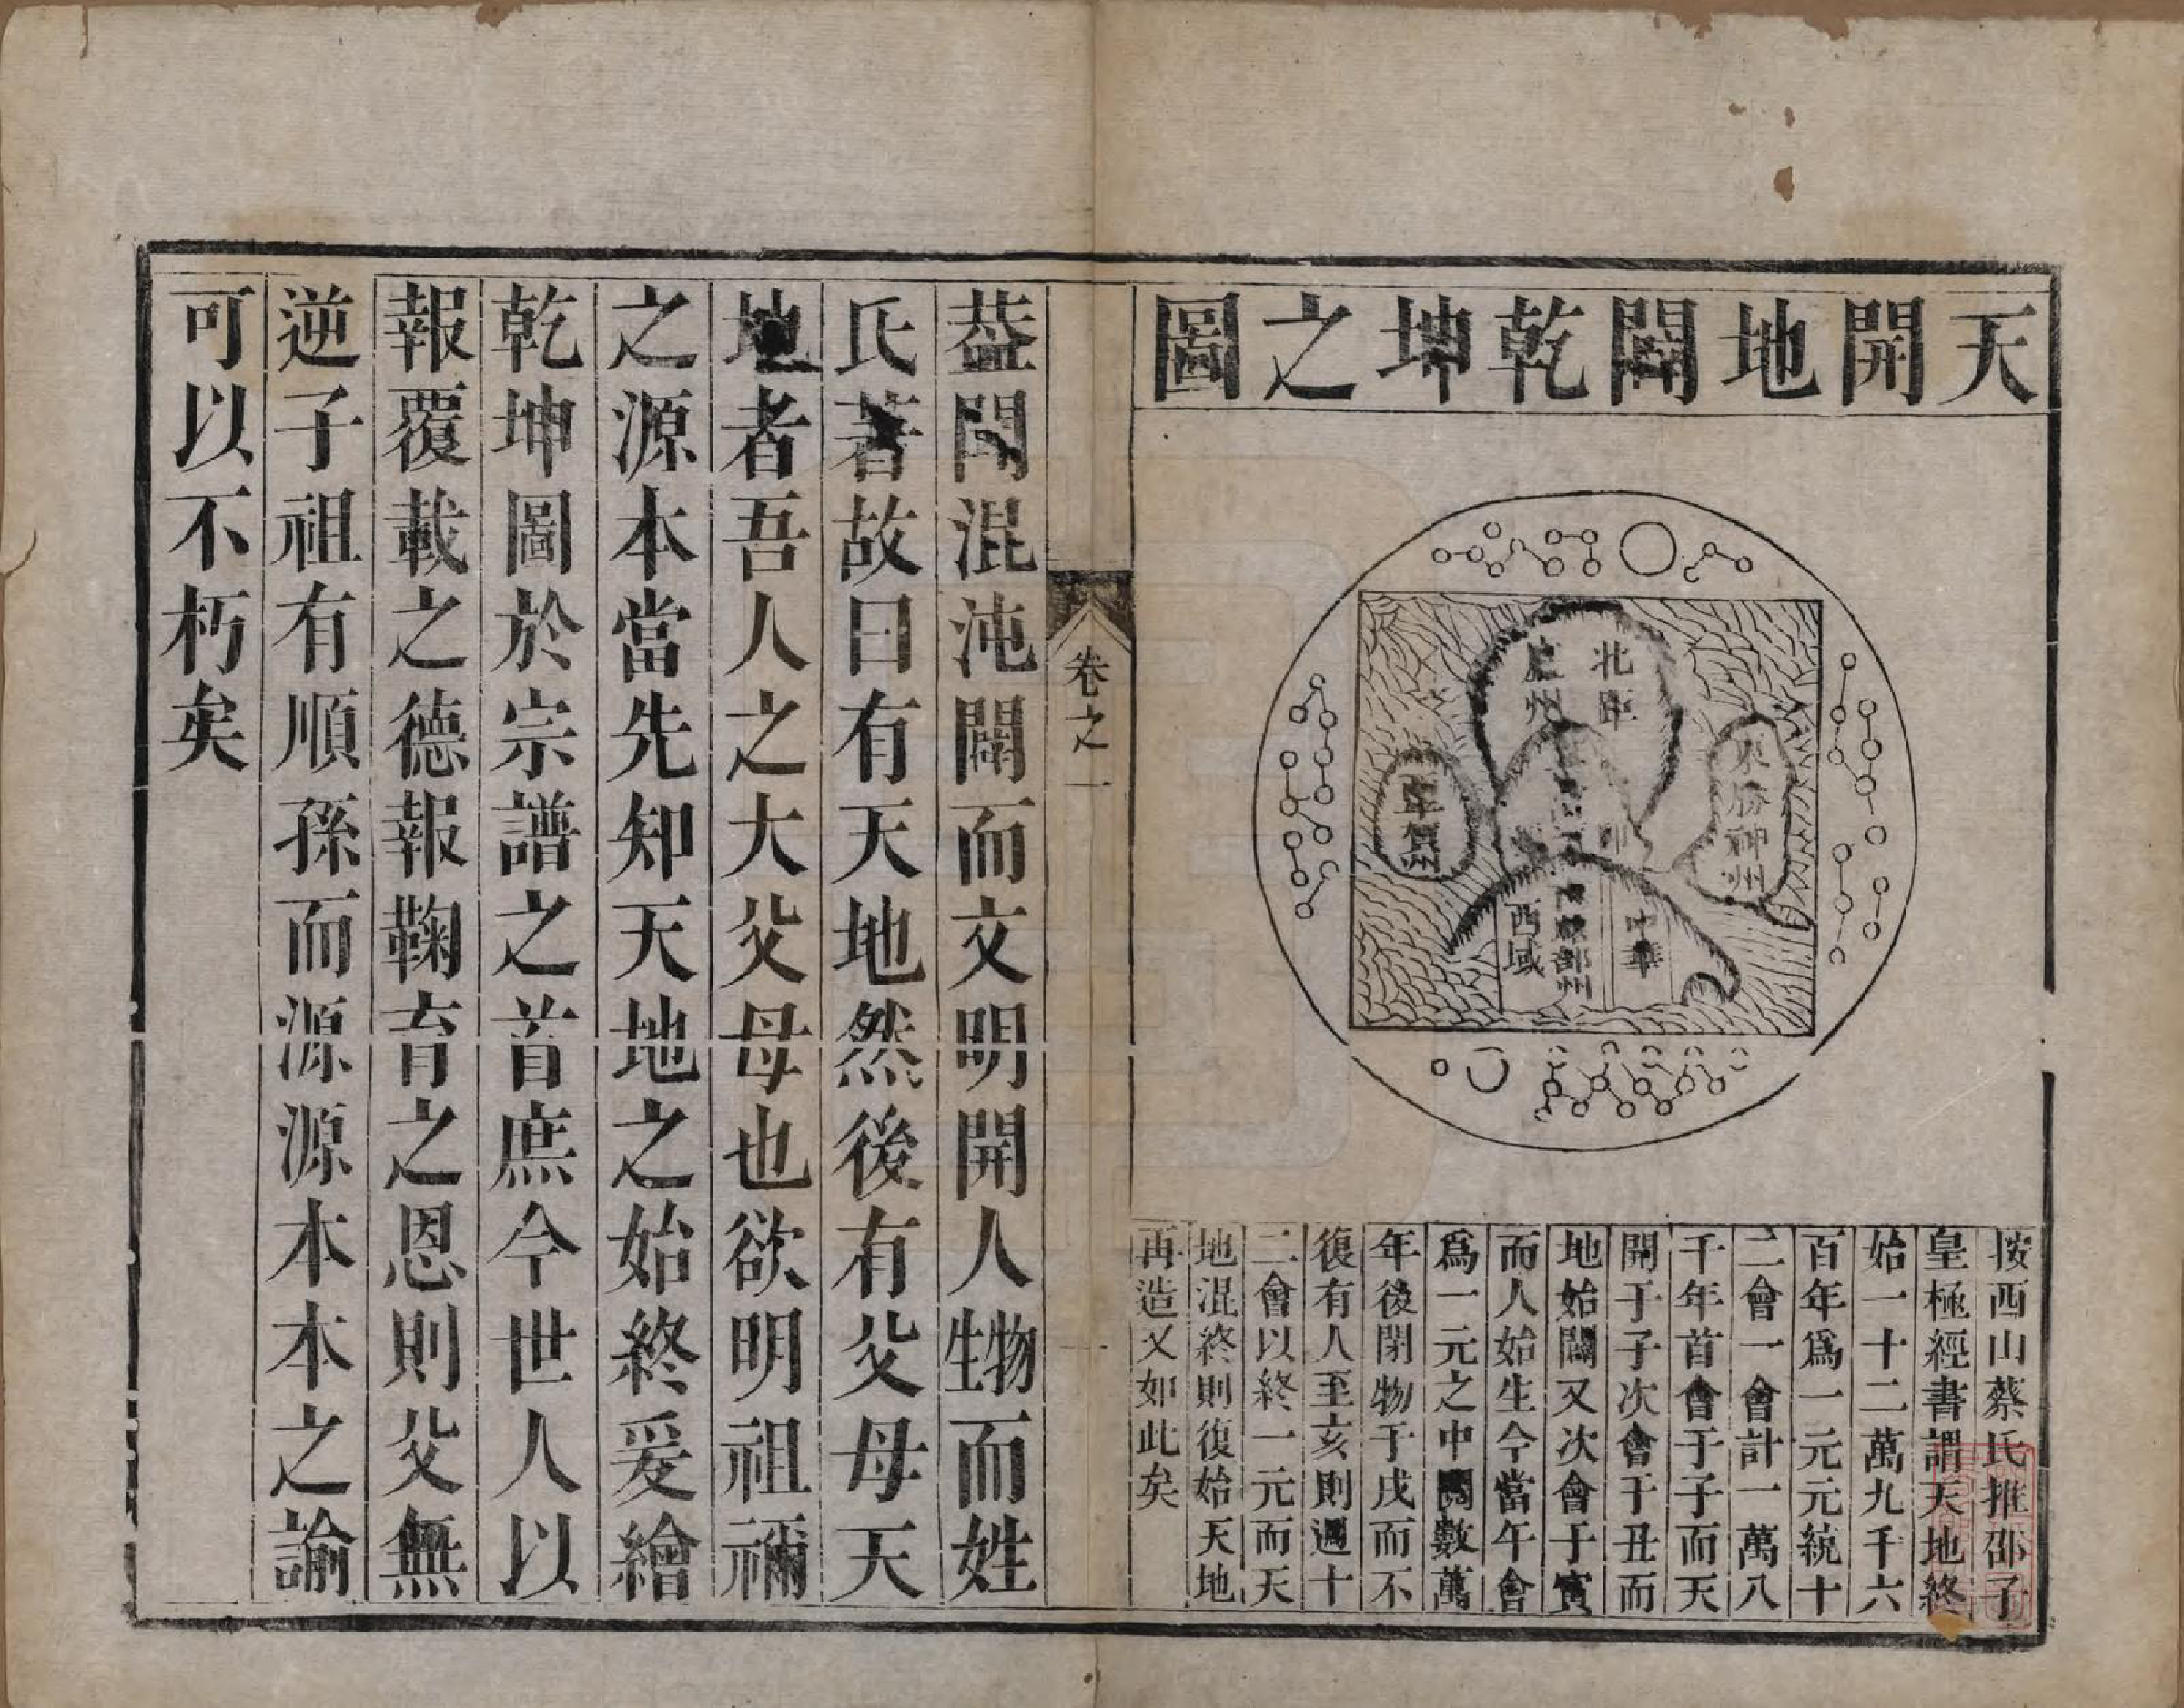 天開地闢乾坤之圖
北距
盧州
東勝神州
西牛賀州
中華
南贍部州
西域
按西山蔡氏推邵子
皇極經書謂天地終
始一十二萬九千六
百年爲一元元統十
二會一會計一萬八
千年首會于子而天
開于子次會于丑而
地始闢又次會于寅
而人始生今當午會
爲一元之中闕數萬
年後閉物于戌而不
復有人至亥則週十
二會以終一元而天
地混終則復始天地
再造又如此矣
卷之一
一
葢聞混沌闢而文明開人物生而姓
氏著故曰有天地然後有父母天
地者吾人之大父母也欲明祖禰
之源本當先知天地之始終爰繪
乾坤圖於宗譜之首庶今世人以
報覆載之德報鞠育之恩則父無
逆子祖有順孫而源源本本之諭
可以不朽矣